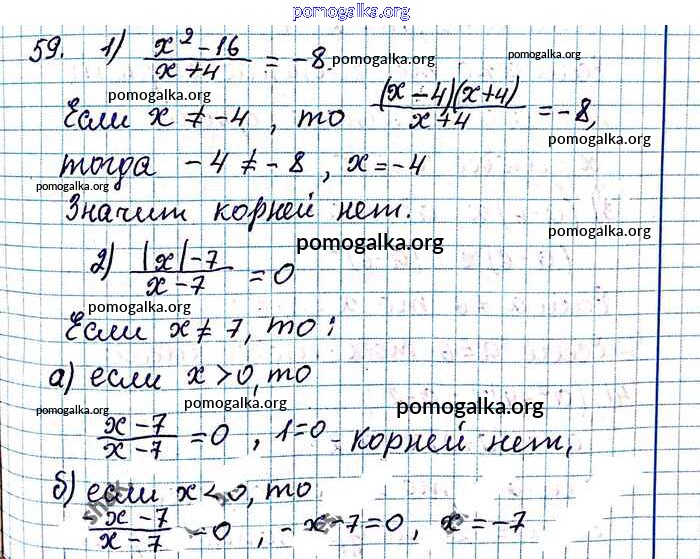 pomogalka.org
59. 1) (x² - 16)/(x + 4) = -8. pomogalka.org pomogalka.org
pomogalka.org
Если x ≠ -4, то ((x - 4)(x + 4))/(x + 4) = -8,
pomogalka.org
тогда -4 ≠ -8, x = -4
pomogalka.org pomogalka.org
Значит корней нет.
pomogalka.org
2) (|x| - 7)/(x - 7) = 0
pomogalka.org
Если x ≠ 7, то:
а) если x > 0, то
pomogalka.org pomogalka.org pomogalka.org
(x - 7)/(x - 7) = 0, 1 = 0 - корней нет,
б) если x < 0, то
(-x - 7)/(x - 7) = 0, -x - 7 = 0, x = -7